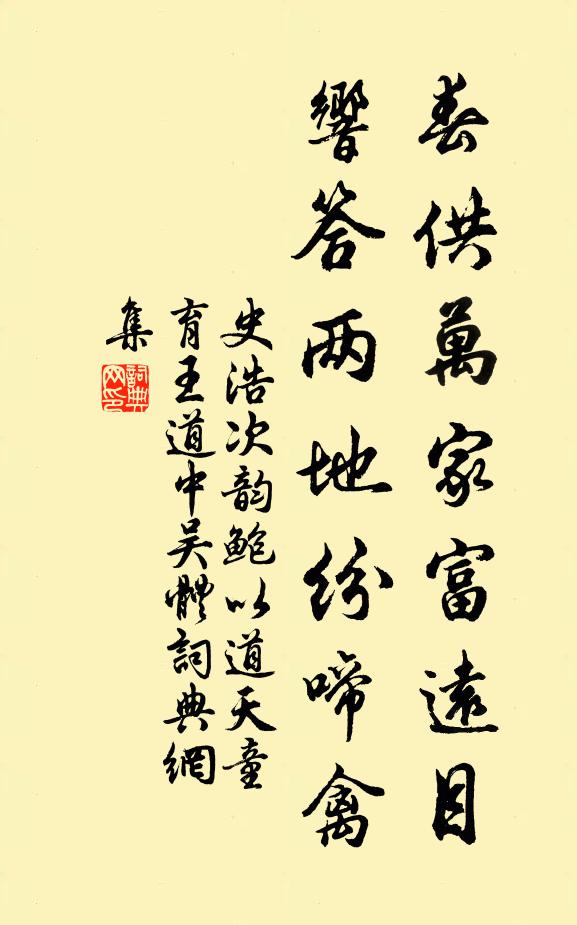 春供萬家富遠目
響答兩地紛啼禽
史浩次韵鮑以道天童
育王道中吴體詞典網
集
詞典
网印